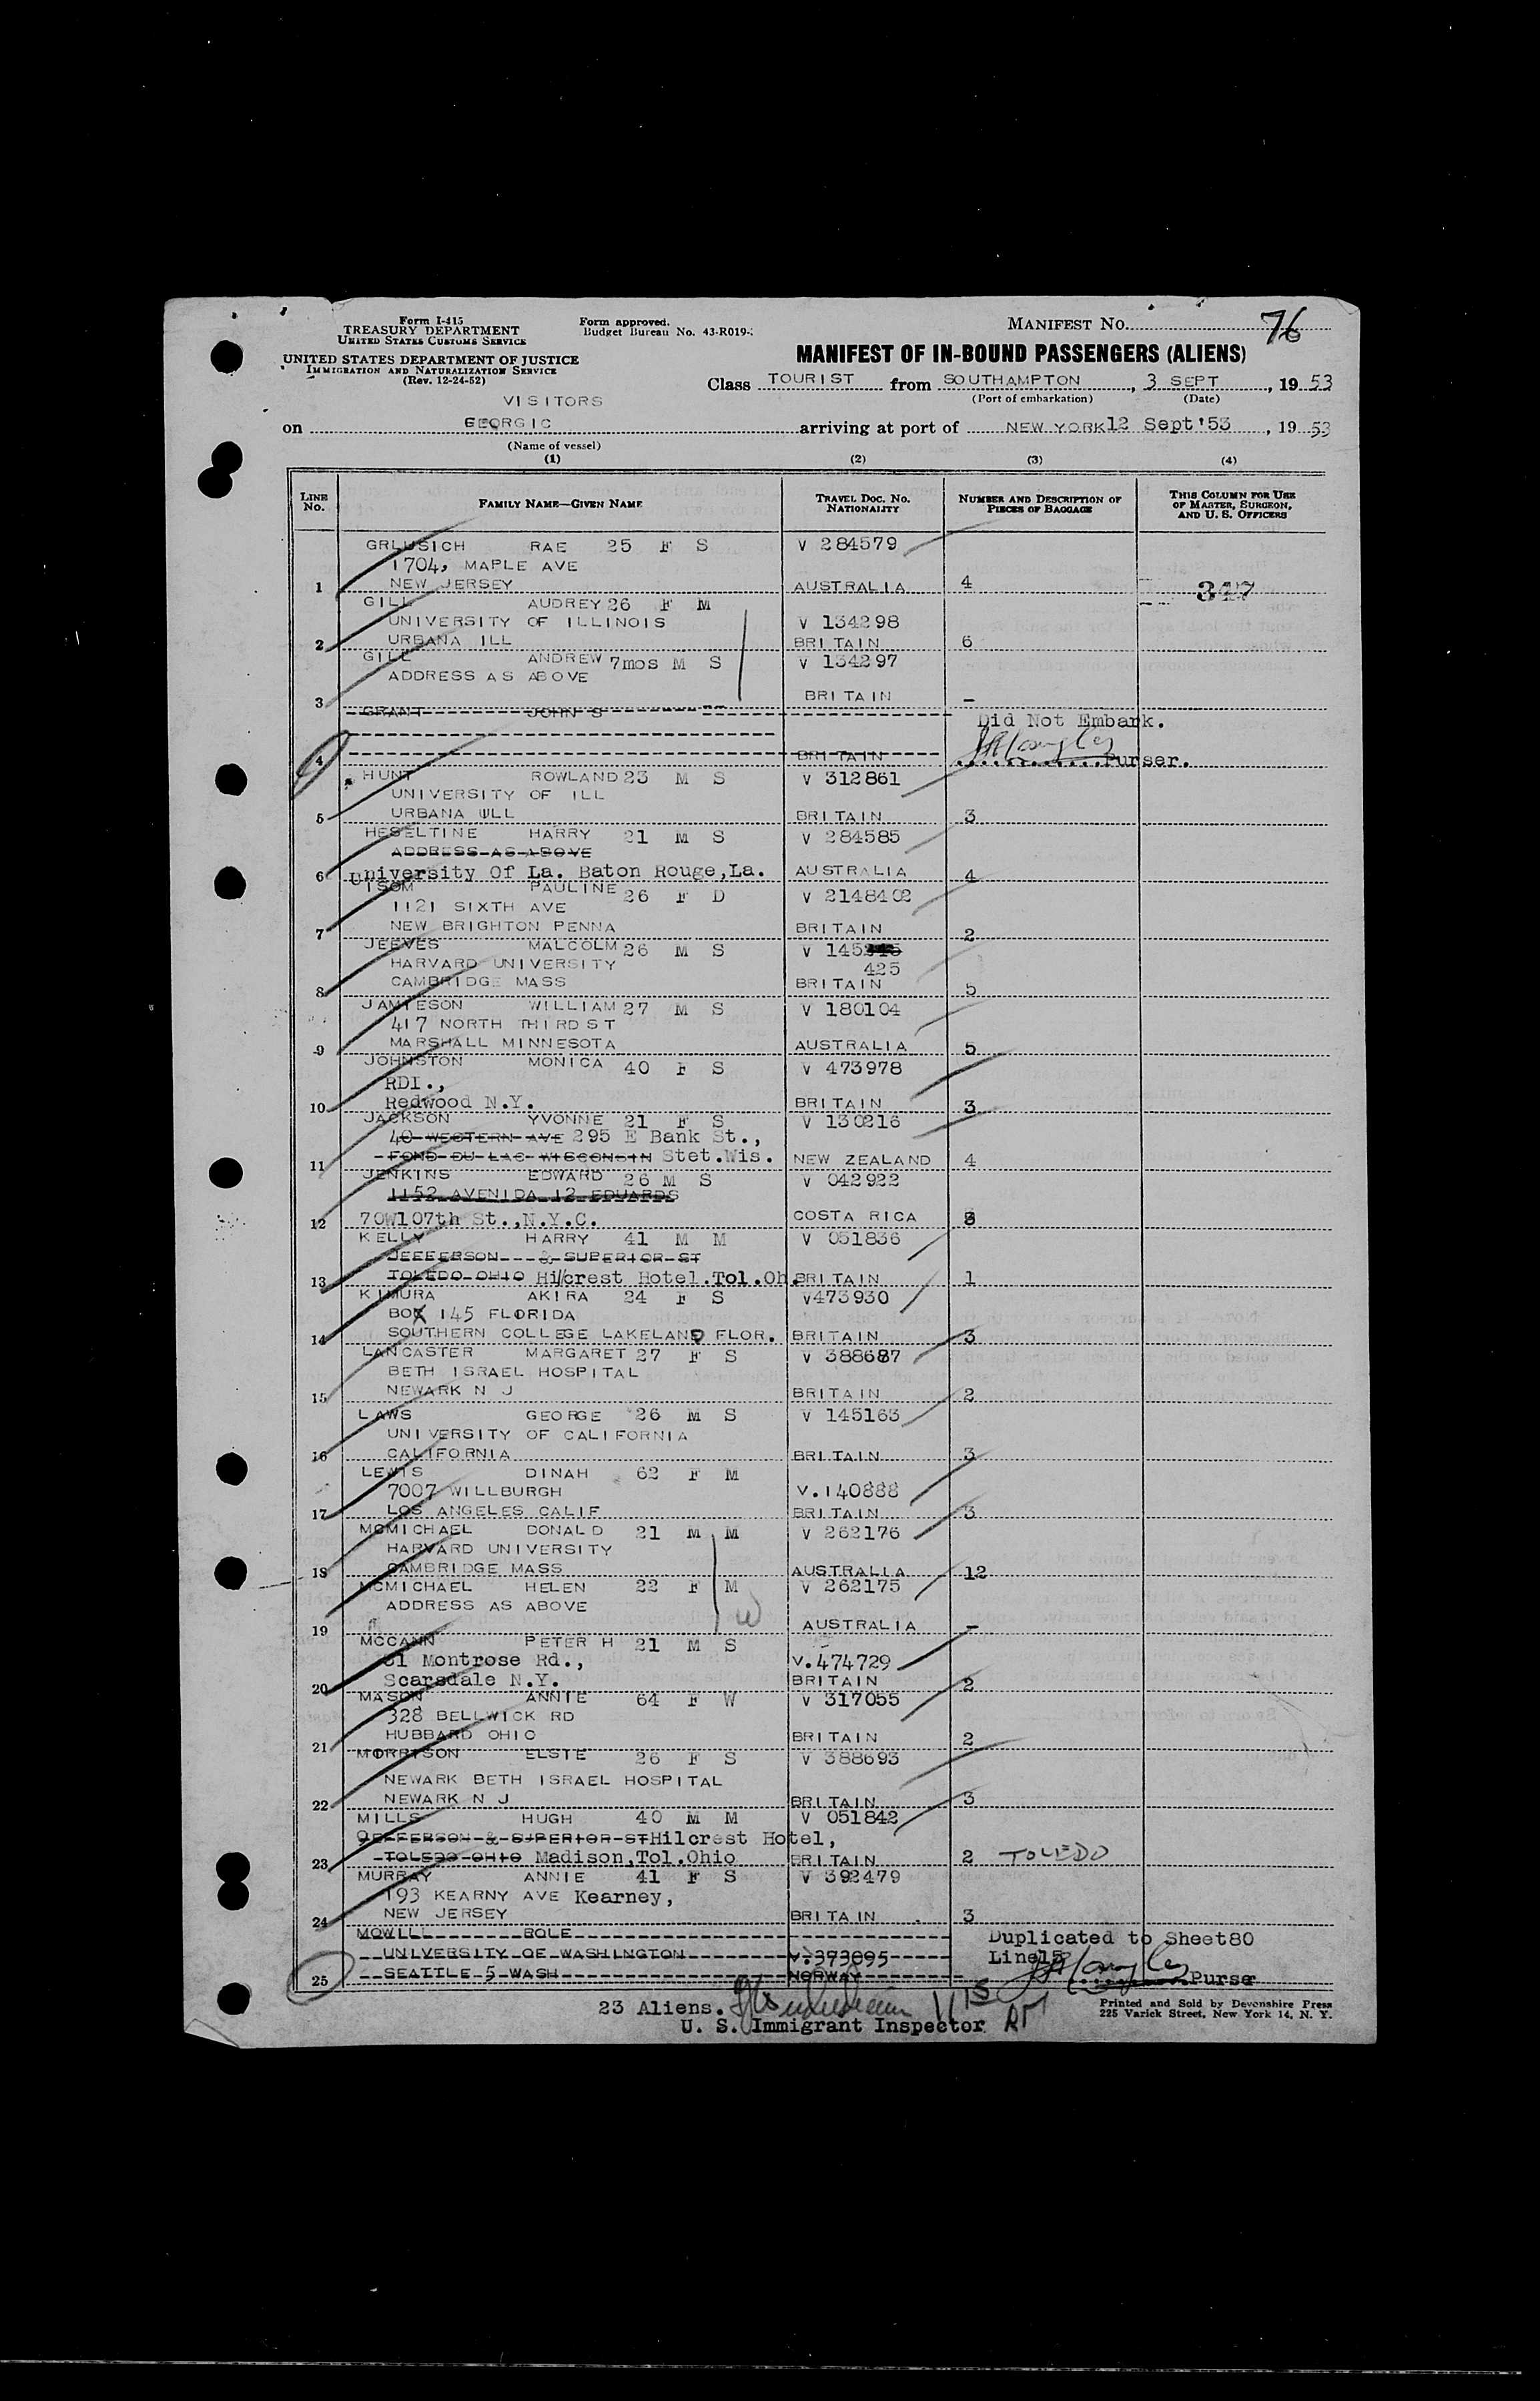 Form I-415
TREASURY DEPARTMENT
UNITED STATES CUSTOMS SERVICE
UNITED STATES DEPARTMENT OF JUSTICE
IMMIGRATION AND NATURALIZATION SERVICE
(Rev. 12-24-52)
Form approved.
Budget Bureau No. 43-R019-
MANIFEST No. 76
MANIFEST OF IN-BOUND PASSENGERS (ALIENS)
Class TOURIST from SOUTHAMPTON, 3 SEPT, 19 53
(Port of embarkation) (Date)
VISITORS
on GEORGIC arriving at port of NEW YORK 12 Sept '53, 19 53
(Name of vessel)
(1) (2) (3) (4)
LINE No. FAMILY NAME—GIVEN NAME TRAVEL DOC. NO. NATIONALITY NUMBER AND DESCRIPTION OF PIECES OF BAGGAGE THIS COLUMN FOR USE OF MASTER, SURGEON, AND U. S. OFFICERS
GRLUSICH RAE 25 F S V 284579
1704, MAPLE AVE
1 NEW JERSEY AUSTRALIA 4 347
GILL AUDREY 26 F M
UNIVERSITY OF ILLINOIS V 134298
2 URBANA ILL BRITAIN 6
GILL ANDREW 7mos M S V 134297
ADDRESS AS ABOVE
3 BRITAIN -
GRANT JOHN S
Did Not Embark.
4 BRITAIN Purser.
HUNT ROWLAND 23 M S V 312861
UNIVERSITY OF ILL
5 URBANA ULL BRITAIN 3
HESELTINE HARRY 21 M S V 284585
ADDRESS AS ABOVE
6 University Of La. Baton Rouge,La. AUSTRALIA 4
ISOM PAULINE 26 F D V 2148402
1121 SIXTH AVE
7 NEW BRIGHTON PENNA BRITAIN 2
JEEVES MALCOLM 26 M S V 145
HARVARD UNIVERSITY 425
8 CAMBRIDGE MASS BRITAIN 5
JAMIESON WILLIAM 27 M S V 180104
417 NORTH THIRD ST
9 MARSHALL MINNESOTA AUSTRALIA 5
JOHNSTON MONICA 40 F S V 473978
RD1.,
10 Redwood N.Y. BRITAIN 3
JACKSON YVONNE 21 F S V 130216
40 WESTERN AVE 295 E Bank St.,
11 FOND DU LAC WISCONSIN Stet.Wis. NEW ZEALAND 4
JENKINS EDWARD 26 M S V 042922
1152 AVENIDA 12 EDUARDS
12 70W107th St.,N.Y.C. COSTA RICA 3
KELLY HARRY 41 M M V 051836
JEFFERSON & SUPERIOR ST
13 TOLEDO OHIO Hilcrest Hotel.Tol.Oh. BRITAIN 1
KIMURA AKIRA 24 F S V473930
BOX 145 FLORIDA
14 SOUTHERN COLLEGE LAKELAND FLOR. BRITAIN 3
LANCASTER MARGARET 27 F S V 388687
BETH ISRAEL HOSPITAL
15 NEWARK N J BRITAIN 2
LAWS GEORGE 26 M S V 145163
UNIVERSITY OF CALIFORNIA
16 CALIFORNIA BRITAIN 3
LEWIS DINAH 62 F M
7007 WILLBURGH V.140888
17 LOS ANGELES CALIF BRITAIN 3
MCMICHAEL DONALD 21 M M V 262176
HARVARD UNIVERSITY
18 CAMBRIDGE MASS AUSTRALIA 12
MCMICHAEL HELEN 22 F M V 262175
ADDRESS AS ABOVE
19 AUSTRALIA -
MCCANN PETER H 21 M S
61 Montrose Rd., V.474729
20 Scarsdale N.Y. BRITAIN 2
MASON ANNIE 64 F W V 317055
328 BELLWICK RD
21 HUBBARD OHIO BRITAIN 2
MORRISON ELSIE 26 F S V 388693
NEWARK BETH ISRAEL HOSPITAL
22 NEWARK N J BRITAIN 3
MILLS HUGH 40 M M V 051842
JEFFERSON & SUPERIOR ST Hilcrest Hotel,
23 TOLEDO OHIO Madison,Tol.Ohio BRITAIN 2 TOLEDO
MURRAY ANNIE 41 F S V 392479
193 KEARNY AVE Kearney,
24 NEW JERSEY BRITAIN 3
MOWILL BOLE Duplicated to Sheet80
UNIVERSITY OF WASHINGTON V.373095 Line15
25 SEATTLE 5 WASH NORWAY Purser
23 Aliens.
U. S. Immigrant Inspector
Printed and Sold by Devonshire Press
225 Varick Street, New York 14, N. Y.